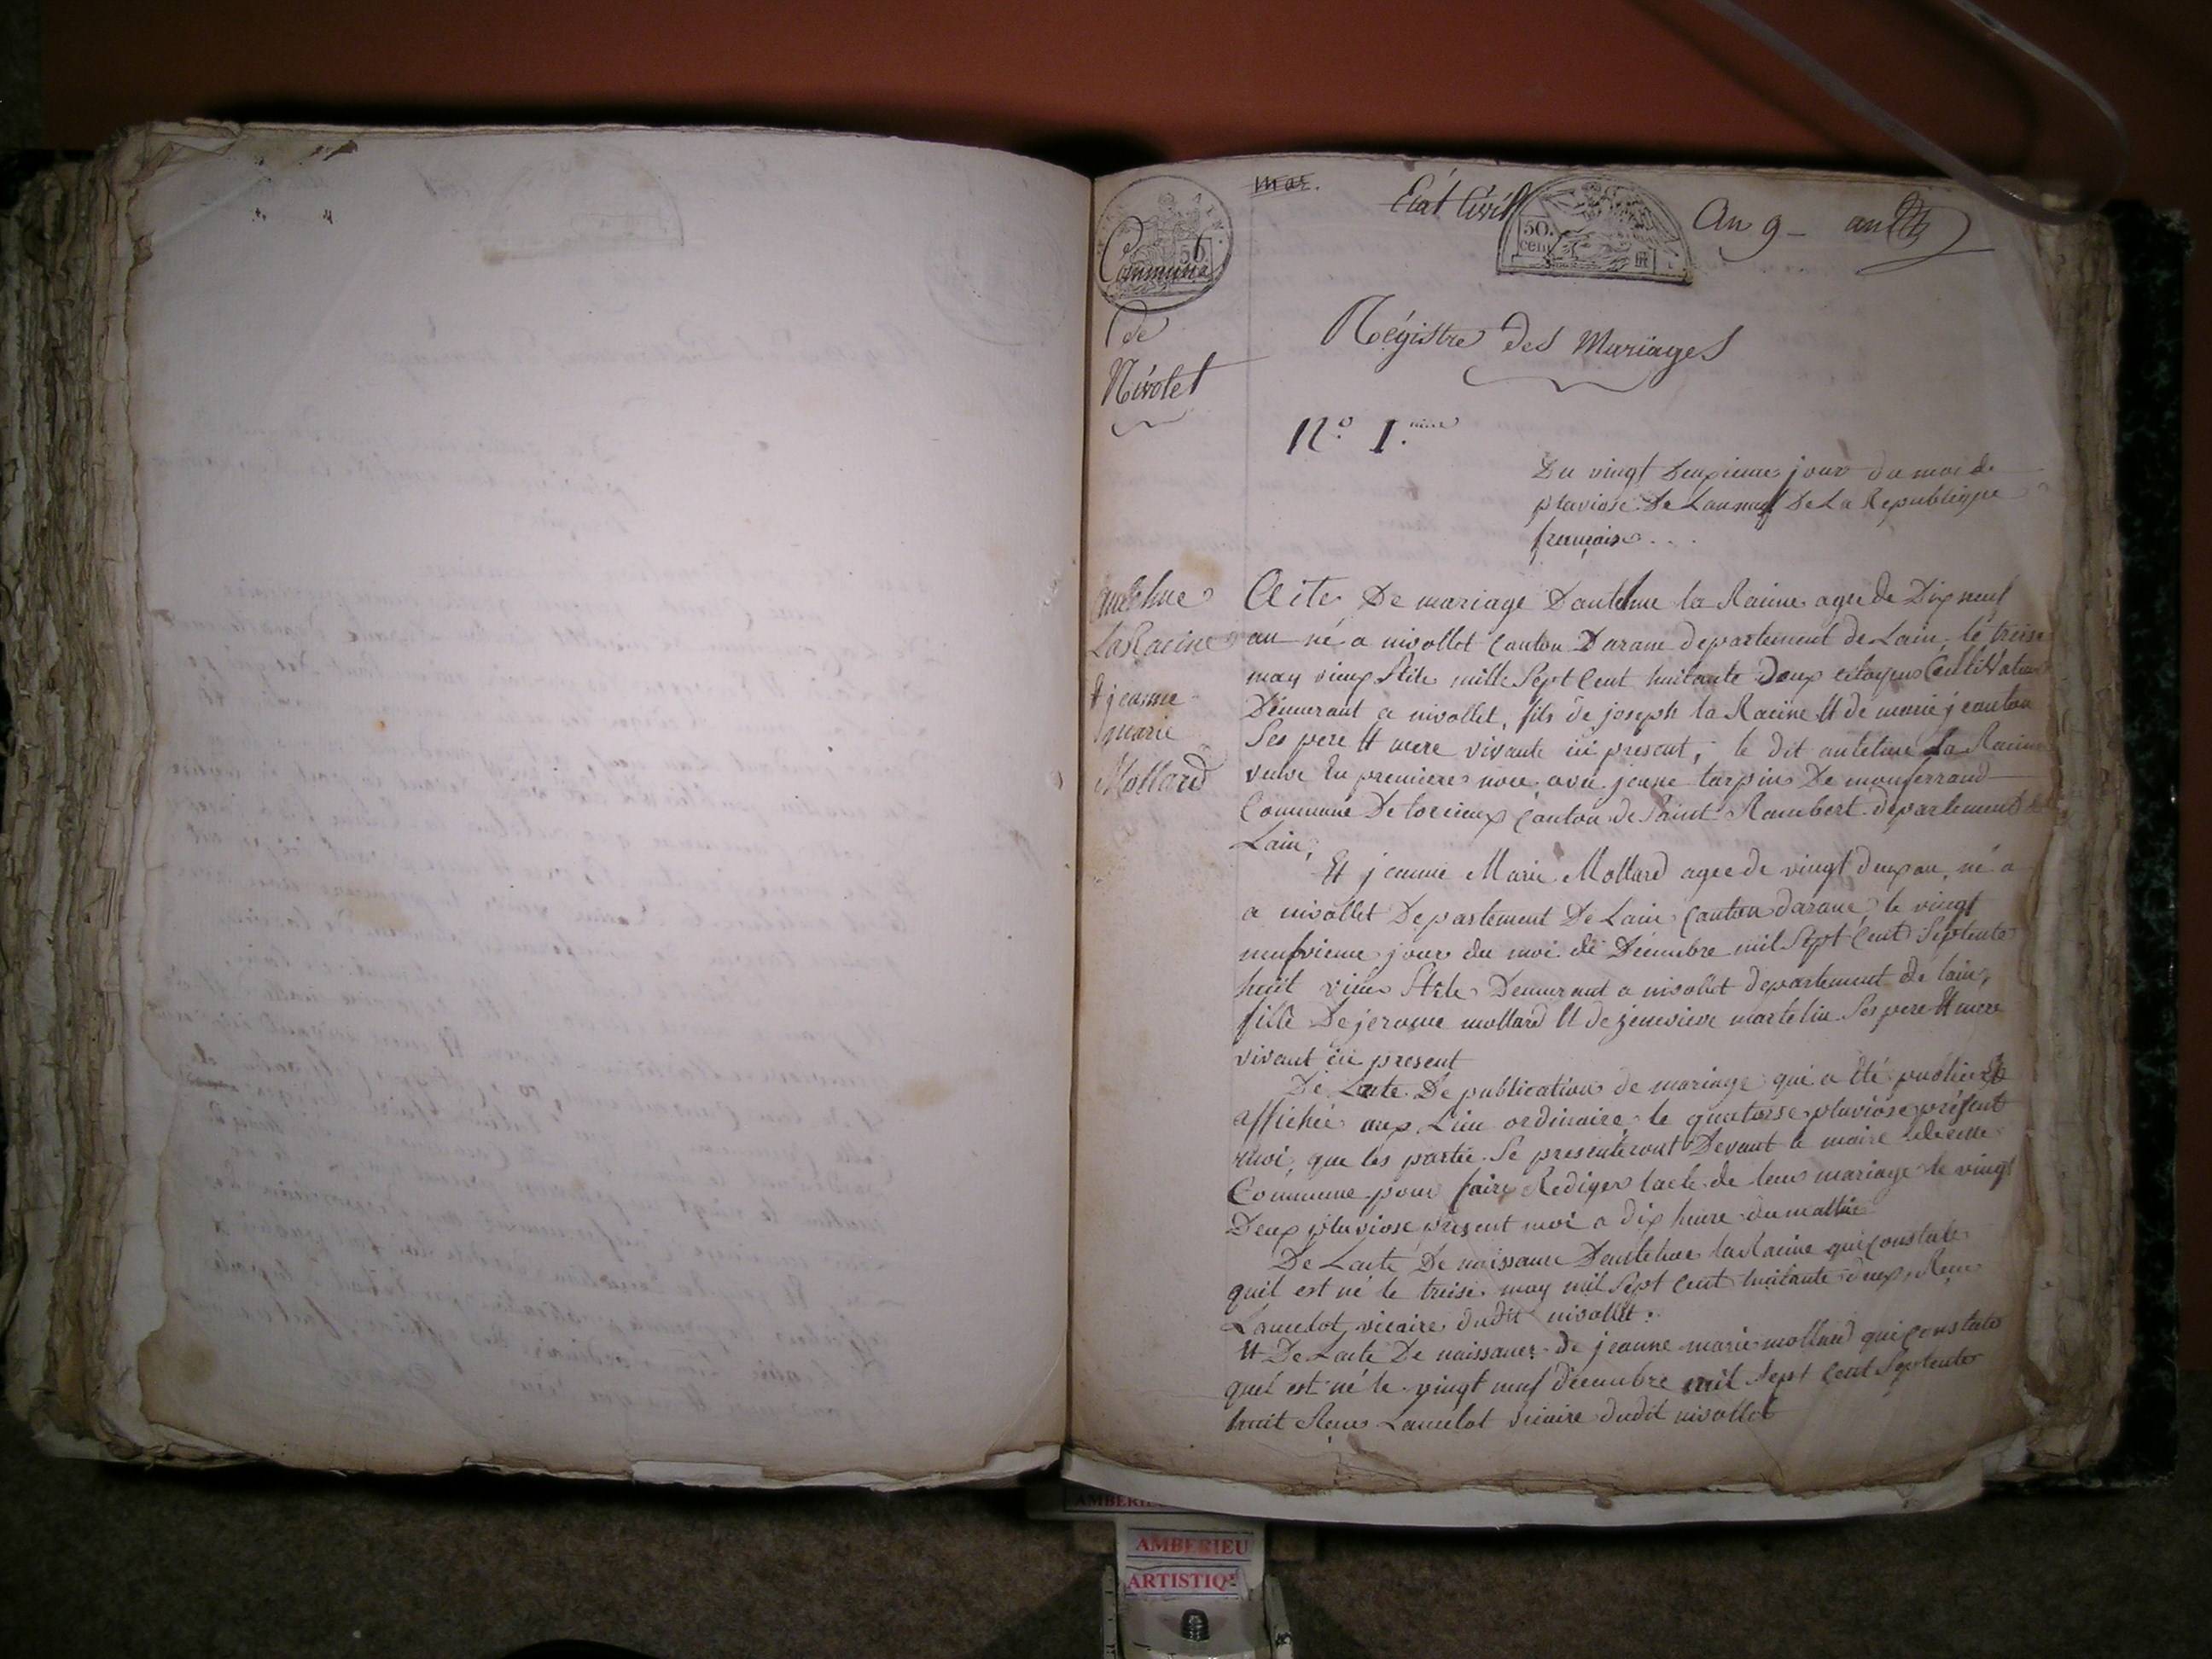 mar.
Etat Civil
50.
cen
An 9 -
Commune
de
Nivolet
Régistre des Mariages
N.º 1.
Du vingt Deuxieme jour du moi de
pluviose De Lan neuf De La Republique
français...
antelme
La Racine
Et jeanne
marie
Mollard
Acte De mariage Dantelme la Racine agee de Dix neuf
an né a nivollet Canton Darane departement de Lain, le treise
may vieux Stile mille Sept Cent huitante Deux citoyens Cultivateur
Demurant a nivollet, fils de joseph la Racine Et de marie jeanton
Ses pere Et mere vivante ici present, le dit antelme La Racine
veuve En premiere noce avec jeanne tarpin De monferrand
Commune De torcieux Canton de Saint Rambert departement de
Lain,
Et jeanne Marie Mollard agee de vingt deux an, né a
a nivollet Departement De Lain Canton darane, le vingt
neufvieme jour du moi de Décembre mil Sept Cent Septente
huit vieux Stile Demurant a nivollet departement de lain,
fille De jerome mollard Et de jenevieve martelin Ses pere Et mere
vivant ici present
De Lacte De publication de mariage qui a été publier Et
affichée aux Lieu ordinaire, le quatorse pluviose présent
moi, que les partie Se presenteront Devant le maire de cette
Commune pour faire Rediger lacte de leur mariage le vingt
Deux pluviose present moi a dix heure du mattin
De Lacte De naissance Dantelme la Racine qui Constate
quil est né le treise may mil Sept Cent huitante deux, Reçu
Lancelot vicaire dudit nivollet.
Et De Lacte De naissance de jeanne marie mollard qui Constate
quel est né le vingt neuf décembre mil Sept Cent Septente
huit Reçu Lancelot vicaire dudit nivollet
AMBERIEU
ARTISTIQ